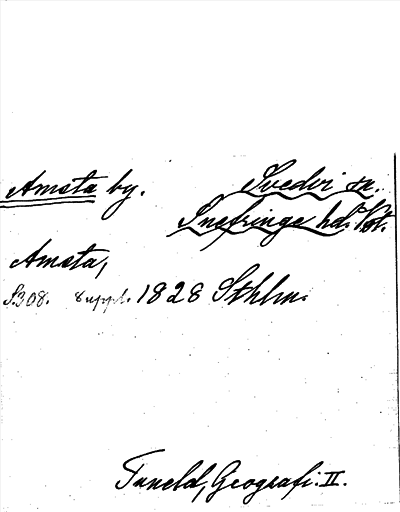 Amsta by. Svedvi sn.
Snefringe hd. Vstm.
Amsta,
S. 308. suppl. 1828 Sthlm.
Tuneld, Geografi. II.